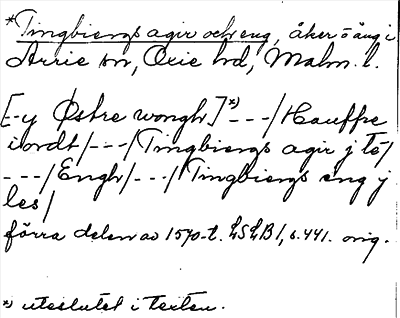 *Tingbiergs agir och eng, åker o äng i
Arrie sn, Oxie hd, Malm. l.
[-y Østre wongh]*) ---/Hauffre
iordt/---/Tingbiergs agir j tē/
---/Engh/---/Tingbiergs eng j
les/
förra delen av 1570-t. LSLB 1, s. 441. orig.
*) uteslutet i texten.